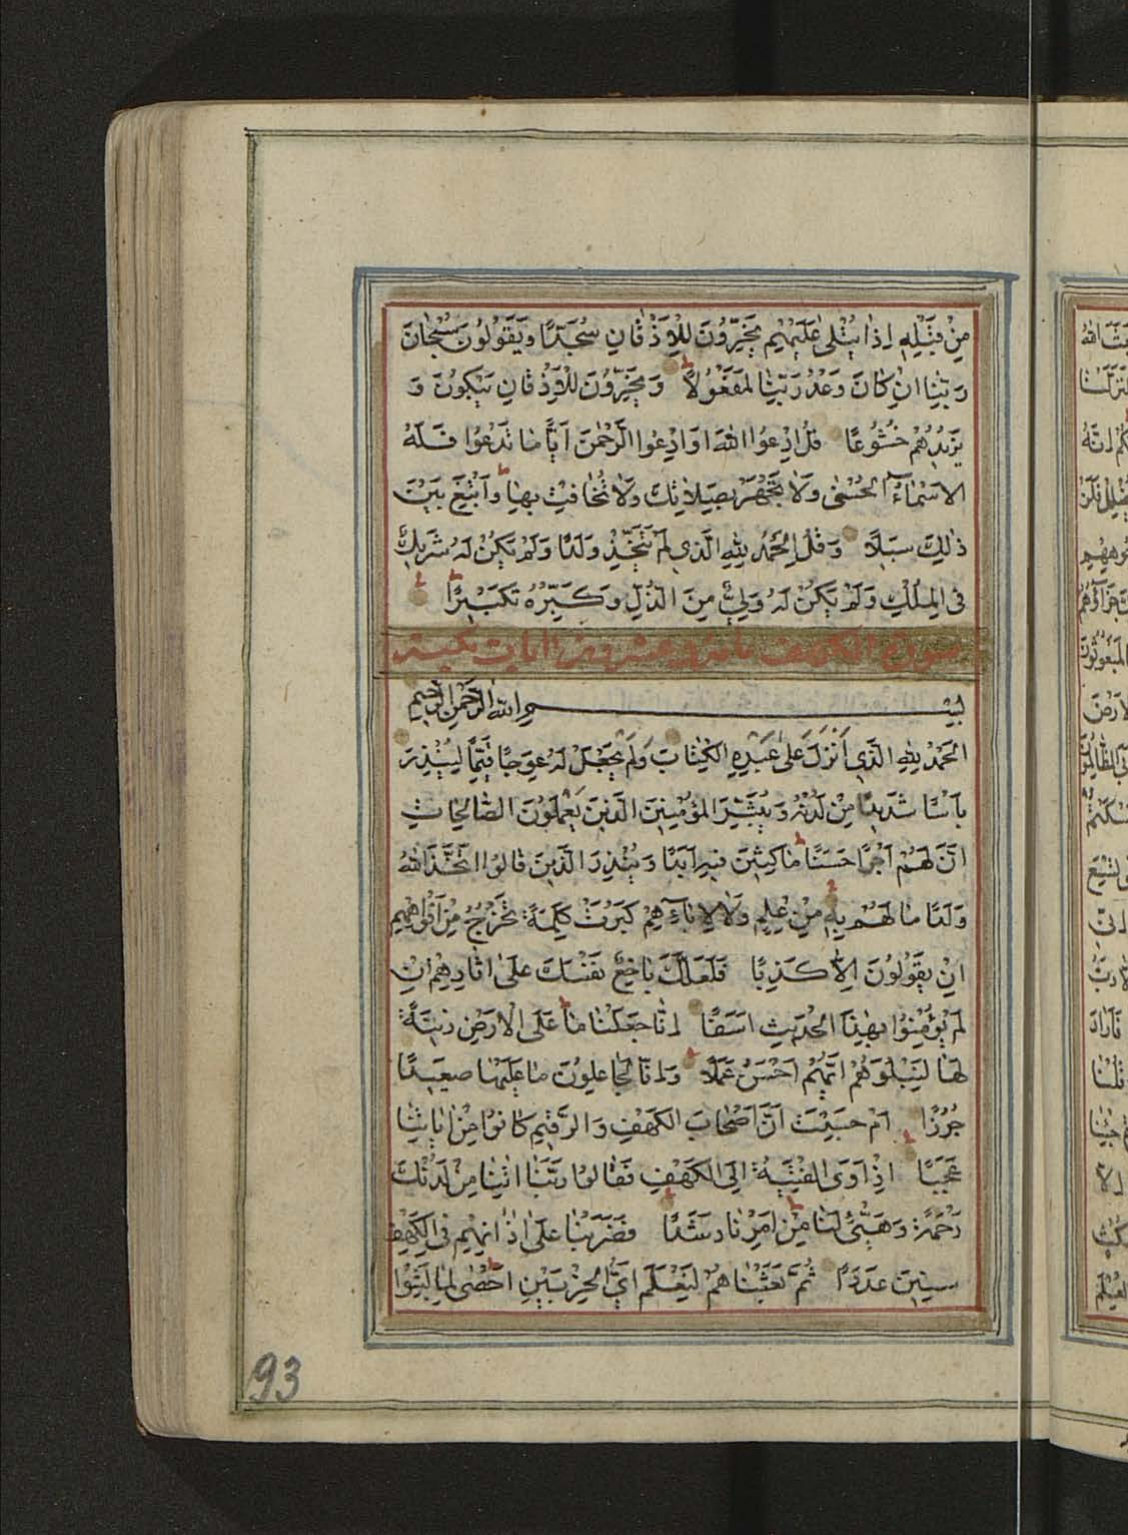 مِنْ قَبْلِهِ اِذَا يُتْلٰى عَلَيْهِمْ يَخِرُّونَ لِلْاَذْقَانِ سُجَّدًا وَيَقُولُونَ سُبْحَانَ
رَبِّنَا اِنْ كَانَ وَعْدُ رَبِّنَا لَمَفْعُولًا وَيَخِرُّونَ لِلْاَذْقَانِ يَبْكُونَ وَ
يَزِيدُهُمْ خُشُوعًا قُلِ ادْعُوا اللّٰهَ اَوِ ادْعُوا الرَّحْمٰنَ اَيًّا مَا تَدْعُوا فَلَهُ
الْاَسْمَآءُ الْحُسْنٰى وَلَا تَجْهَرْ بِصَلَاتِكَ وَلَا تُخَافِتْ بِهَا وَابْتَغِ بَيْنَ
ذٰلِكَ سَبِيلًا وَقُلِ الْحَمْدُ لِلّٰهِ الَّذِى لَمْ يَتَّخِذْ وَلَدًا وَلَمْ يَكُنْ لَهُ شَرِيكٌ
فِى الْمُلْكِ وَلَمْ يَكُنْ لَهُ وَلِىٌّ مِنَ الذُّلِّ وَكَبِّرْهُ تَكْبِيرًا
سورة الكهف مائة وعشر ايات مكية
بِسْمِ اللّٰهِ الرَّحْمٰنِ الرَّحِيمِ
اَلْحَمْدُ لِلّٰهِ الَّذِى اَنْزَلَ عَلٰى عَبْدِهِ الْكِتَابَ وَلَمْ يَجْعَلْ لَهُ عِوَجًا قَيِّمًا لِيُنْذِرَ
بَاْسًا شَدِيدًا مِنْ لَدُنْهُ وَيُبَشِّرَ الْمُؤْمِنِينَ الَّذِينَ يَعْمَلُونَ الصَّالِحَاتِ
اَنَّ لَهُمْ اَجْرًا حَسَنًا مَاكِثِينَ فِيهِ اَبَدًا وَيُنْذِرَ الَّذِينَ قَالُوا اتَّخَذَ اللّٰهُ
وَلَدًا مَا لَهُمْ بِهِ مِنْ عِلْمٍ وَلَا لِاٰبَآئِهِمْ كَبُرَتْ كَلِمَةً تَخْرُجُ مِنْ اَفْوَاهِهِمْ
اِنْ يَقُولُونَ اِلَّا كَذِبًا فَلَعَلَّكَ بَاخِعٌ نَفْسَكَ عَلٰى اٰثَارِهِمْ اِنْ
لَمْ يُؤْمِنُوا بِهٰذَا الْحَدِيثِ اَسَفًا اِنَّا جَعَلْنَا مَا عَلَى الْاَرْضِ زِينَةً
لَهَا لِنَبْلُوَهُمْ اَيُّهُمْ اَحْسَنُ عَمَلًا وَاِنَّا لَجَاعِلُونَ مَا عَلَيْهَا صَعِيدًا
جُرُزًا اَمْ حَسِبْتَ اَنَّ اَصْحَابَ الْكَهْفِ وَالرَّقِيمِ كَانُوا مِنْ اٰيَاتِنَا
عَجَبًا اِذْ اَوَى الْفِتْيَةُ اِلَى الْكَهْفِ فَقَالُوا رَبَّنَا اٰتِنَا مِنْ لَدُنْكَ
رَحْمَةً وَهَيِّئْ لَنَا مِنْ اَمْرِنَا رَشَدًا فَضَرَبْنَا عَلٰى اٰذَانِهِمْ فِى الْكَهْفِ
سِنِينَ عَدَدًا ثُمَّ بَعَثْنَاهُمْ لِنَعْلَمَ اَىُّ الْحِزْبَيْنِ اَحْصٰى لِمَا لَبِثُوا
93